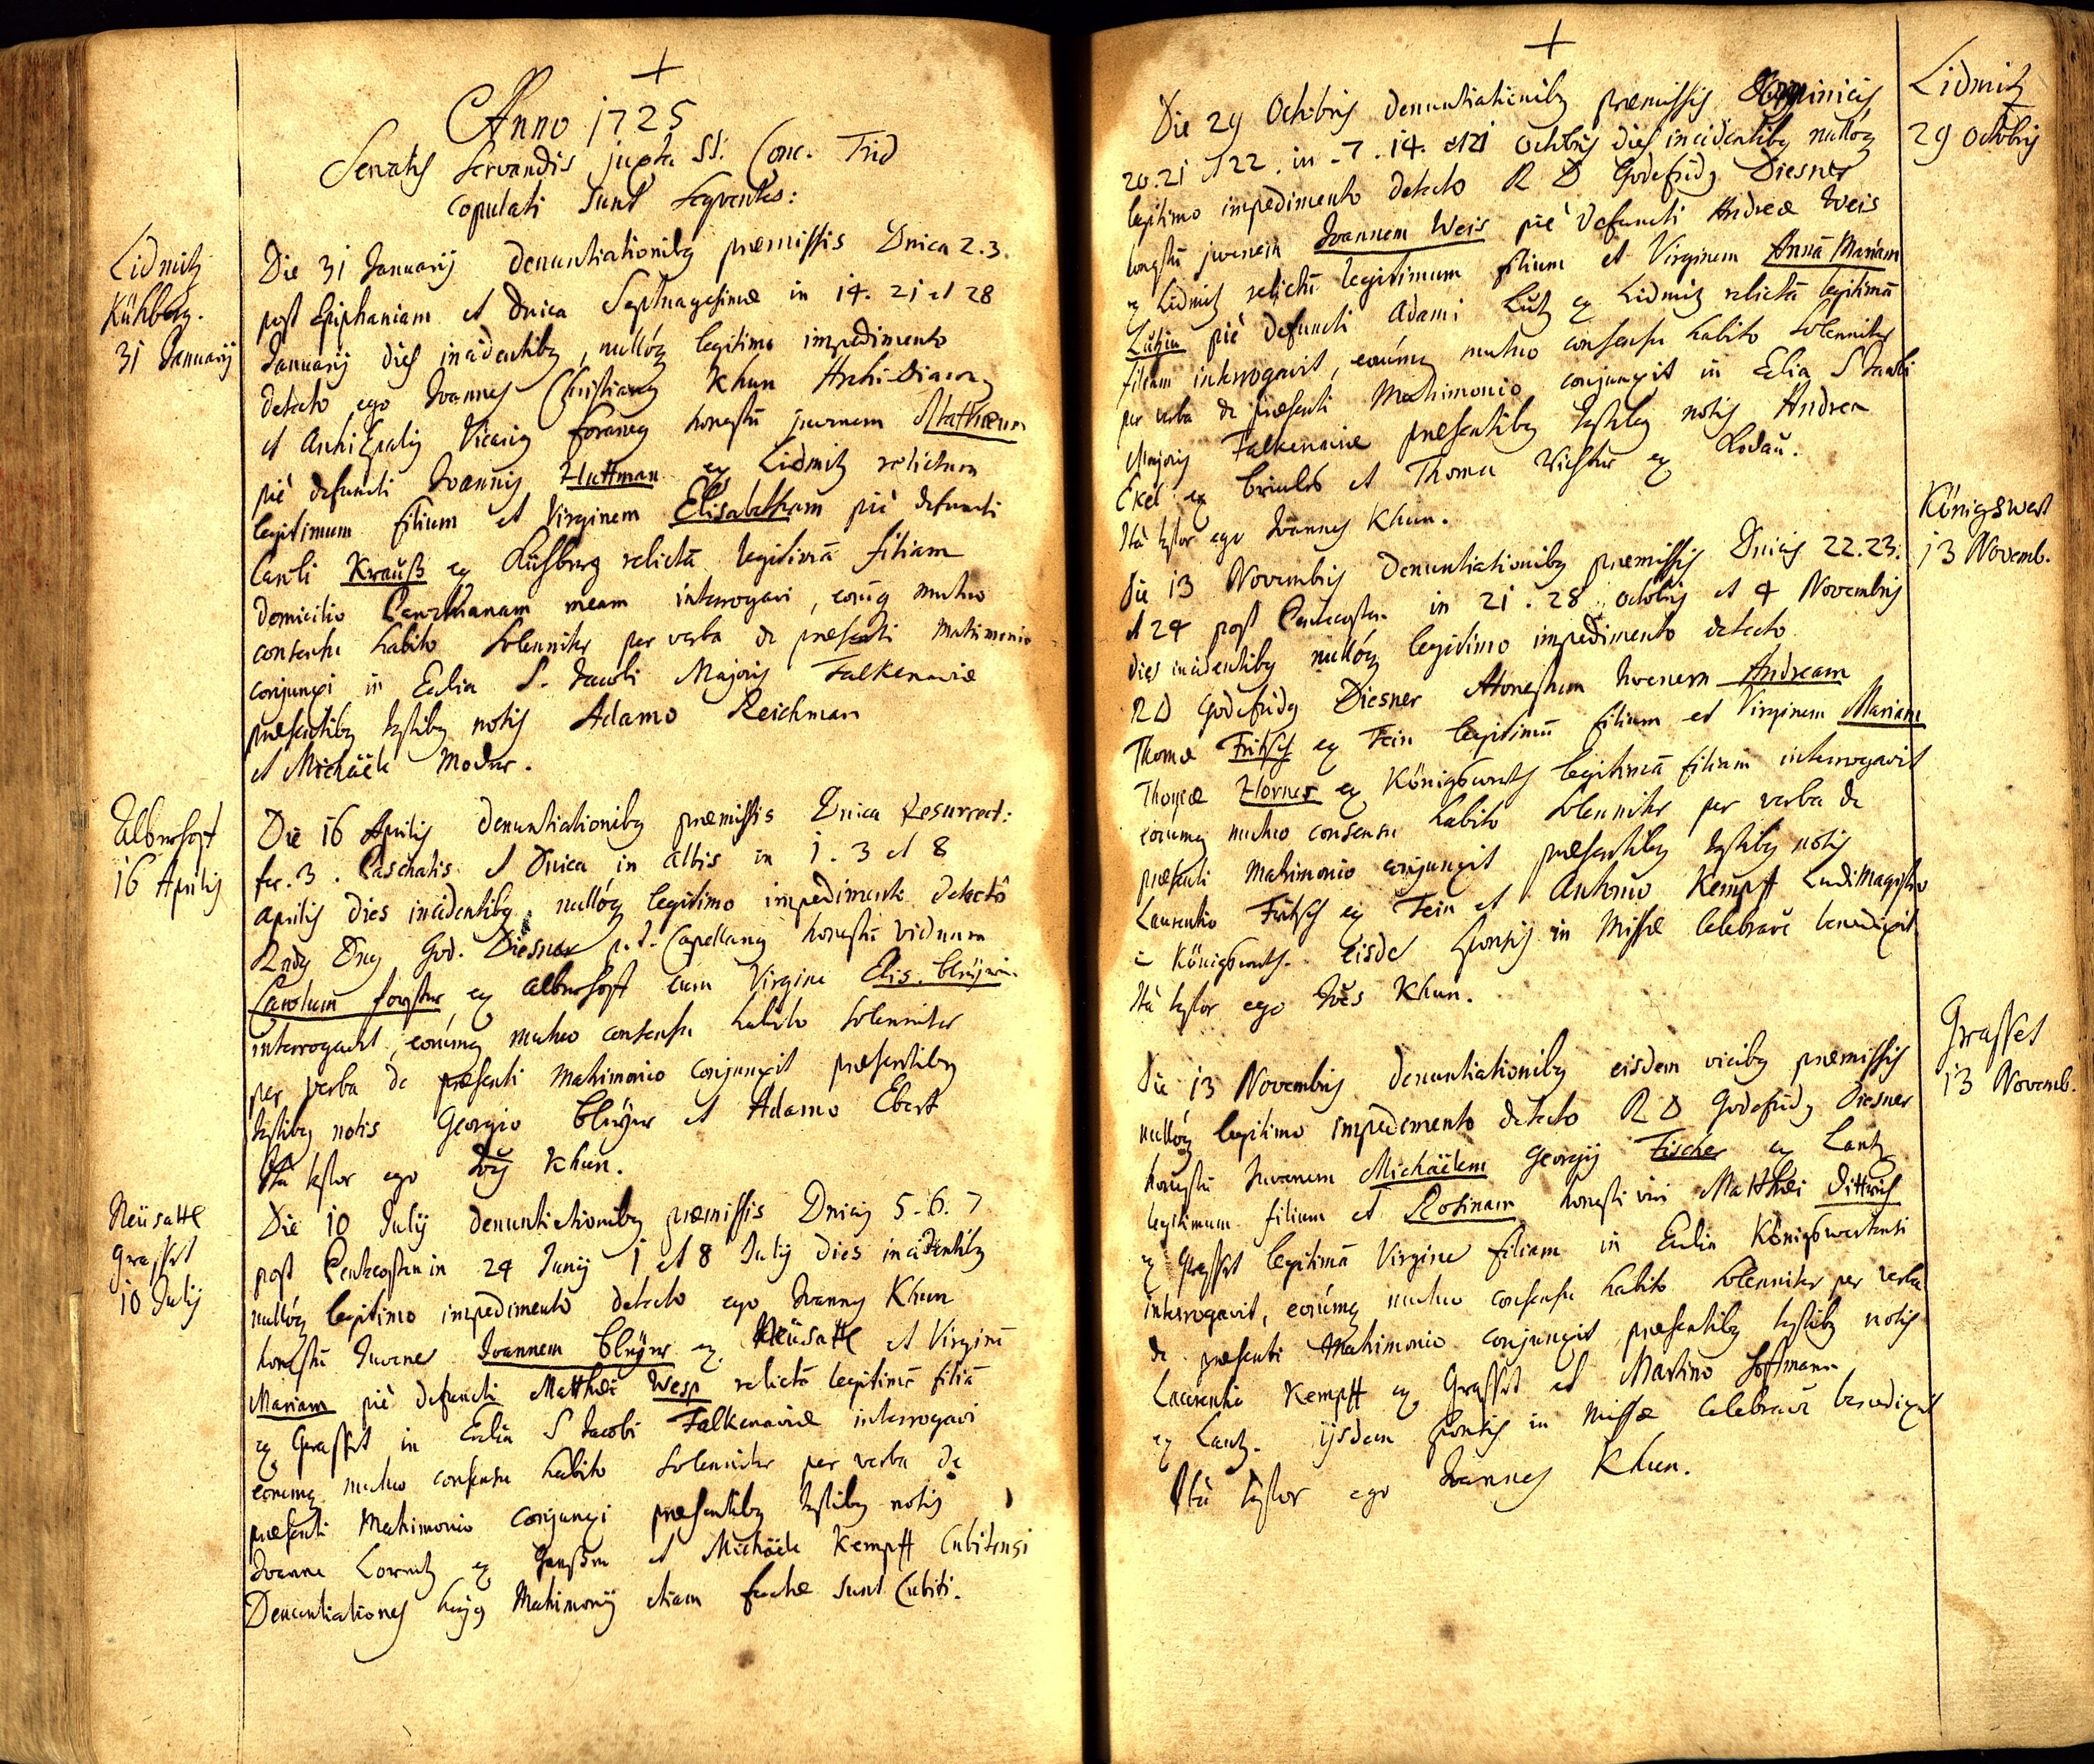 +
Anno 1725
Servatis Servandis juxta SS. Conc. Trid
copulati sunt sequentes:
Lidmitz
Kühberg.
31 Januarij
Die 31 Januarij denuntiationibq praemissis Dnica 2.3.
post Epiphaniam et Dnica Septuagesimae in 14. 21 et 28
Januarij dies incidentibq, nulloq legitimo impedimento
detecto ego Joannes Christianq Khun Archi-Diaconq
et AnchiEpalis Vicariq foraneq honestū juvenem Mathaeum
piè defuncti Joannis Huttman ex Lidmitz relictum
legitimum filium et Virginem Elisabetham piè defuncti
Caroli Krauß ex Kühberg relictā legitimā filiam
domicilio Parochianam meam interrogavi, eorūq mutuo
consensu habito solenniter per verba de praesenti Matrimonio
conjunxi in Eccliā S. Jacobi Majoris Falkenaviae
praesentibq testibq notis Adamo Reichman
et Michaële Moder.
Albernhoft
16 Aprilis
Die 16 Aprilis denuntiationibq praemissis Dnica Resurrect:
fer. 3. Paschatis et Dnica in albis in 1. 3 et 8
Aprilis dies incidentibq, nulloq legitimo impedimento detectô
Rndq Dnq God. Diesner p.t. Capellanq honestū viduum
Carolum forster ex Albernhoft cum Virgine Elis. Bleÿerin
interrogavit, eorūmq mutuo consensu habito solenniter
per verba de praesenti Matrimonio conjunxit praesentibq
testibq notis Georgio Bleÿer et Adamo Ebert
Ità testor ego Joēs Khun.
Neüsattl
Grasset
10 Julij
Die 10 Julij denuntiationibq praemissis Dnicis 5. 6. 7
post Pentecosten in 24 Junij 1 et 8 Julij dies incidentibq
nulloq legitimo impedimento detecto ego Joannes Khun
honestū Juvenē Joannem Bleÿer ex Neüsattl et Virginē
Mariam piè defuncti Matthaei Wesp relictā legitimā filiā
ex Grasset in Ecclia S Jacobi Falkenaviae interrogavi
eorumq mutuo consensu habito solenniter per verba de
praesenti Matrimonio conjunxi praesentibq testibq notis
Joanne Lorentz ex et Michaële Kempff Cubitensi
Denuntiationes hujq Matrimonij etiam factae sunt Cubiti.
+
Lidmitz
29 Octobris
Die 29 Octobris denuntiationibq praemissis Dominicis
20. 21 et 22. in 7. 14. et 21 Octobris dies incidentibq nulloq
legitimo impedimento detecto R D Godefridq Diesner
honestū juvenem Joannem Weis piè defuncti Andreae Weis
ex Lidmitz relictū legitimum filium et Virginem Annā Mariam
Lützin piè defuncti Adami Lutz ex Lidmitz relictā legitimā
filiam interrogavit, eorūmq mutuo consensu habito solenniter
per verba de praesenti Matrimonio conjunxit in Eclia S Jacobi
Majoris Falkenaviae praesentibq testibq notis Andrea
Ekel ex et Thoma Richter ex Kodau.
Ità testor ego Joannes Khun.
Königswert
13 Novemb.
Die 13 Novembris denuntiationibq praemissis Dnicis 22. 23.
et 24 post Pentecosten in 21. 28 octobris et 4 Novembris
dies incidentibq nulloq legitimo impedimento detecto
RD Godefridq Diesner Honestum Juvenem Andream
Thomae Fritsch ex Tein legitimū filium et Virginem Mariam
Thomae Horner ex Königswerth legitimā filiam interrogavit
eorumq mutuo consensu habito solenniter per verba de
praesenti Matrimonio conjunxit praesentibq testibq notis
Laurentio Fritsch ex Tein et Antonio Kempff LudiMagistro
Königswerth. eisdē sponsis in Missae celebrare benedixit.
Ità testor ego Joēs Khun.
Grasset
13 Novemb.
Die 13 Novembris denuntiationibq eisdem vicibq praemissis
nulloq legitimo impedimento detecto R D Godefridq Diesner
honestū Juvenem Michaëlem Georgij Fischer ex Lantz
legitimum filium et Rosinam honesti viri Matthaei Dittrich
ex Grasset legitimā Virginē filiam in Ecclia Königswertensi
interrogavit, eorūmq mutuo consensu habito solenniter per verba
de praesenti Matrimonio conjunxit praesentibq testibq notis
Laurentio Kempff ex Grasset et Martino Hoffmann
ex Lantz. ijsdem sponsis in Missae Celebrare benedixit
Ità testor ego Joannes Khun.